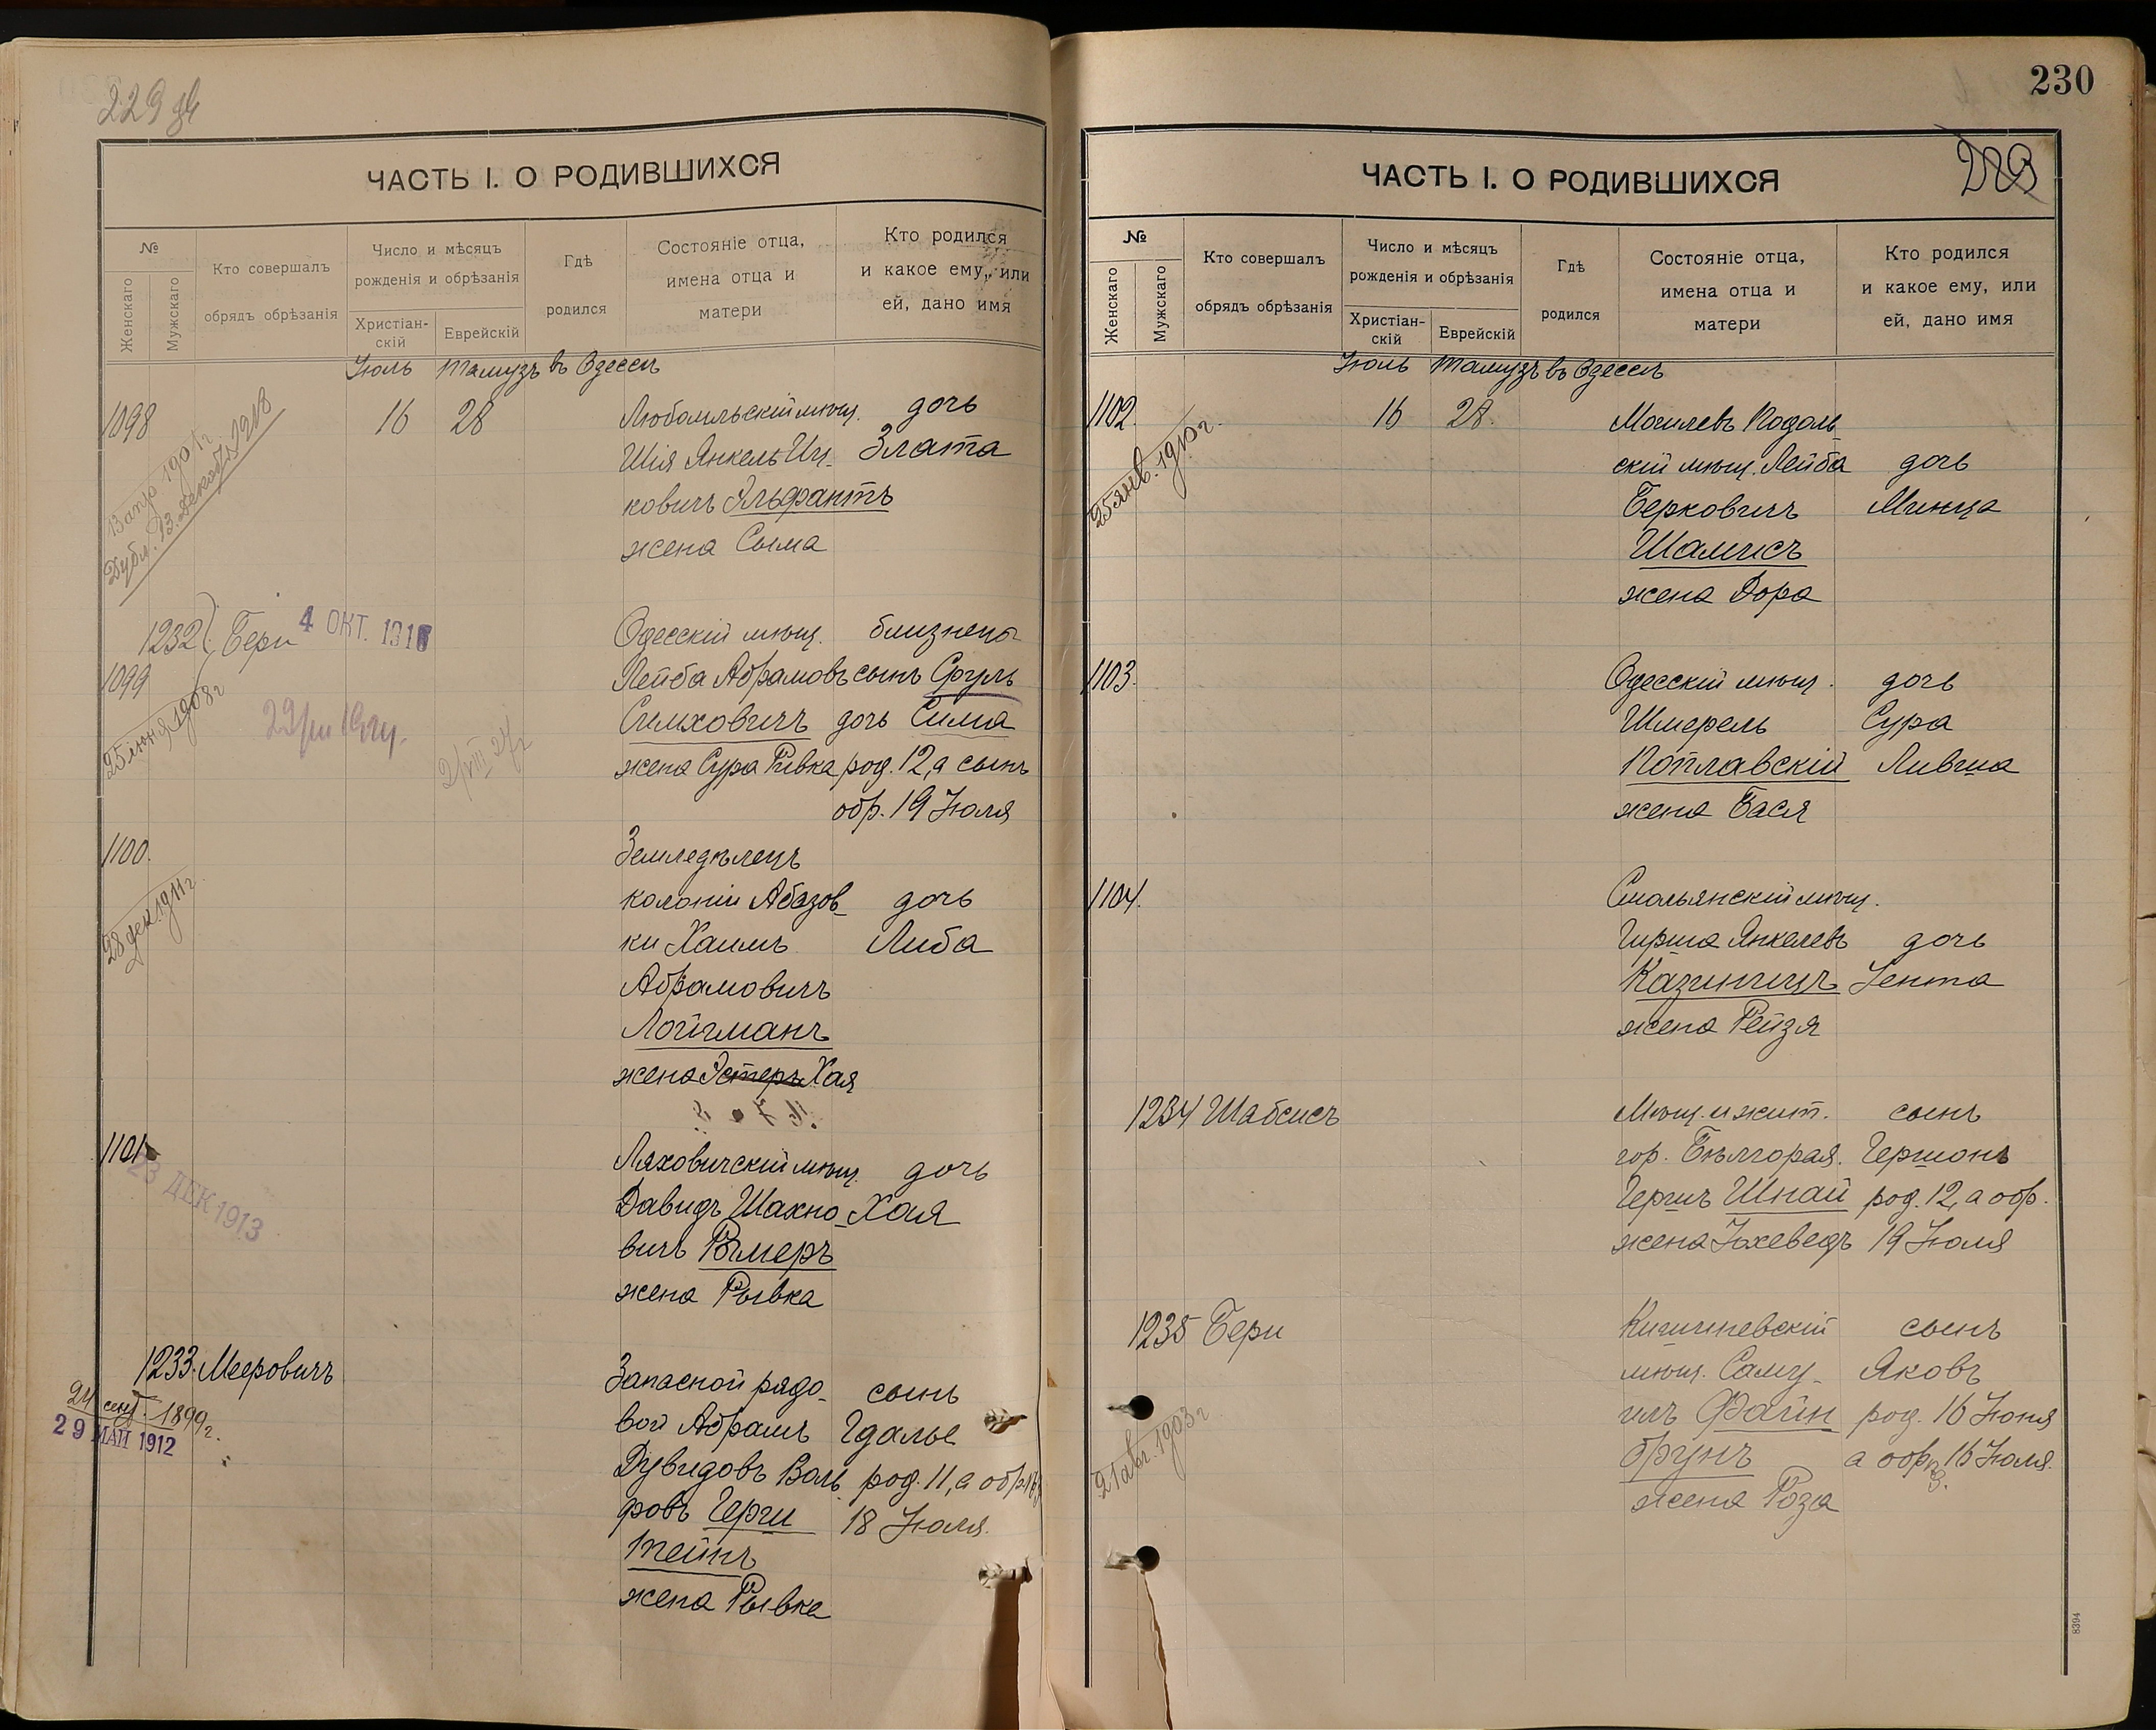 229 об
ЧАСТЬ I. О РОДИВШИХСЯ
№
Женскаго
Мужскаго
Кто совершалъ
обрядъ обрѣзанія
Число и мѣсяцъ
рожденія и обрѣзанія
Христіан-
скій
Еврейскій
Гдѣ
родился
Состояніе отца,
имена отца и
матери
Кто родился
и какое ему, или
ей, дано имя
Іюль Тамузъ въ Одессѣ
1098
16 28
Любомльскій мѣщ. дочь
Шія Янкель Иц- Злата
ковичъ Эльфантъ
жена Сыма
1901 г.
Дубл. 13. Декабр. 1918
1232 Бери 4 ОКТ. 191
1099
25 іюня 1908 г
Одесскій мѣщ. близнецы
Лейба Абрамовъ сынъ Сруль
Симховичъ дочь Сима
жена Сура Ривка род. 12, а сынъ
обр. 19 Іюля
1100.
28 дек. 1911 г.
Земледѣлецъ
колоніи Абазов- дочь
ки Хаимъ Либа
Абрамовичъ
Лойгманъ
жена Эстеръ Хая
1101
23 ДЕК 1913
Ляховичскій мѣщ. дочь
Давидъ Шахно- Хая
вичъ Рымеръ
жена Рывка
1233. Мееровичъ
24 сент. 1899 г.
29 МАЙ 1912
Запасной рядо- сынъ
вой Абрамъ Гдалье
Дувидовъ Воль- род. 11, а обр.
фовъ Герш
тейнъ 18 Іюля.
жена Рывка
230
229
ЧАСТЬ I. О РОДИВШИХСЯ
№
Женскаго
Мужскаго
Кто совершалъ
обрядъ обрѣзанія
Число и мѣсяцъ
рожденія и обрѣзанія
Христіан-
скій
Еврейскій
Гдѣ
родился
Состояніе отца,
имена отца и
матери
Кто родился
и какое ему, или
ей, дано имя
Іюль Тамузъ въ Одессѣ
1102.
25 янв. 1910 г.
16 28.
Могилевъ Подоль-
скій мѣщ. Лейба дочь
Берковичъ Минца
Шамисъ
жена Дора
1103.
Одесскій мѣщ. дочь
Шмерель Сура
Поплавскій Лившa
жена Бася
1104.
Смольянскій мѣщ.
Гирша Янкелевъ дочь
Казиницъ Іента
жена Рейзя
1234 Шабсисъ
Мѣщ. и жит. сынъ
гор. Бѣлгорая. Гершонъ
Гершъ Шнай род. 12, а обр.
жена Іохеведъ 19 Іюля
1235 Бери
21 авг. 1903 г
Кишиневскій сынъ
мѣщ. Саму- Яковъ
илъ Файн род. 16 Іюня
брунъ а обр. 16 Іюля.
жена Роза
8394